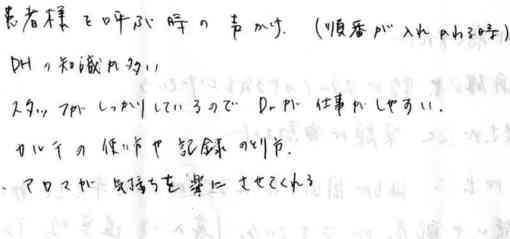 患者様を呼ぶ時の声かけ. (順番が入れかわる時)
DHの知識が多い
スタッフがしっかりしているのでDr.が仕事がしやすい.
カルテの使い方や記録のとり方.
・アロマが気持ちを楽にさせてくれる